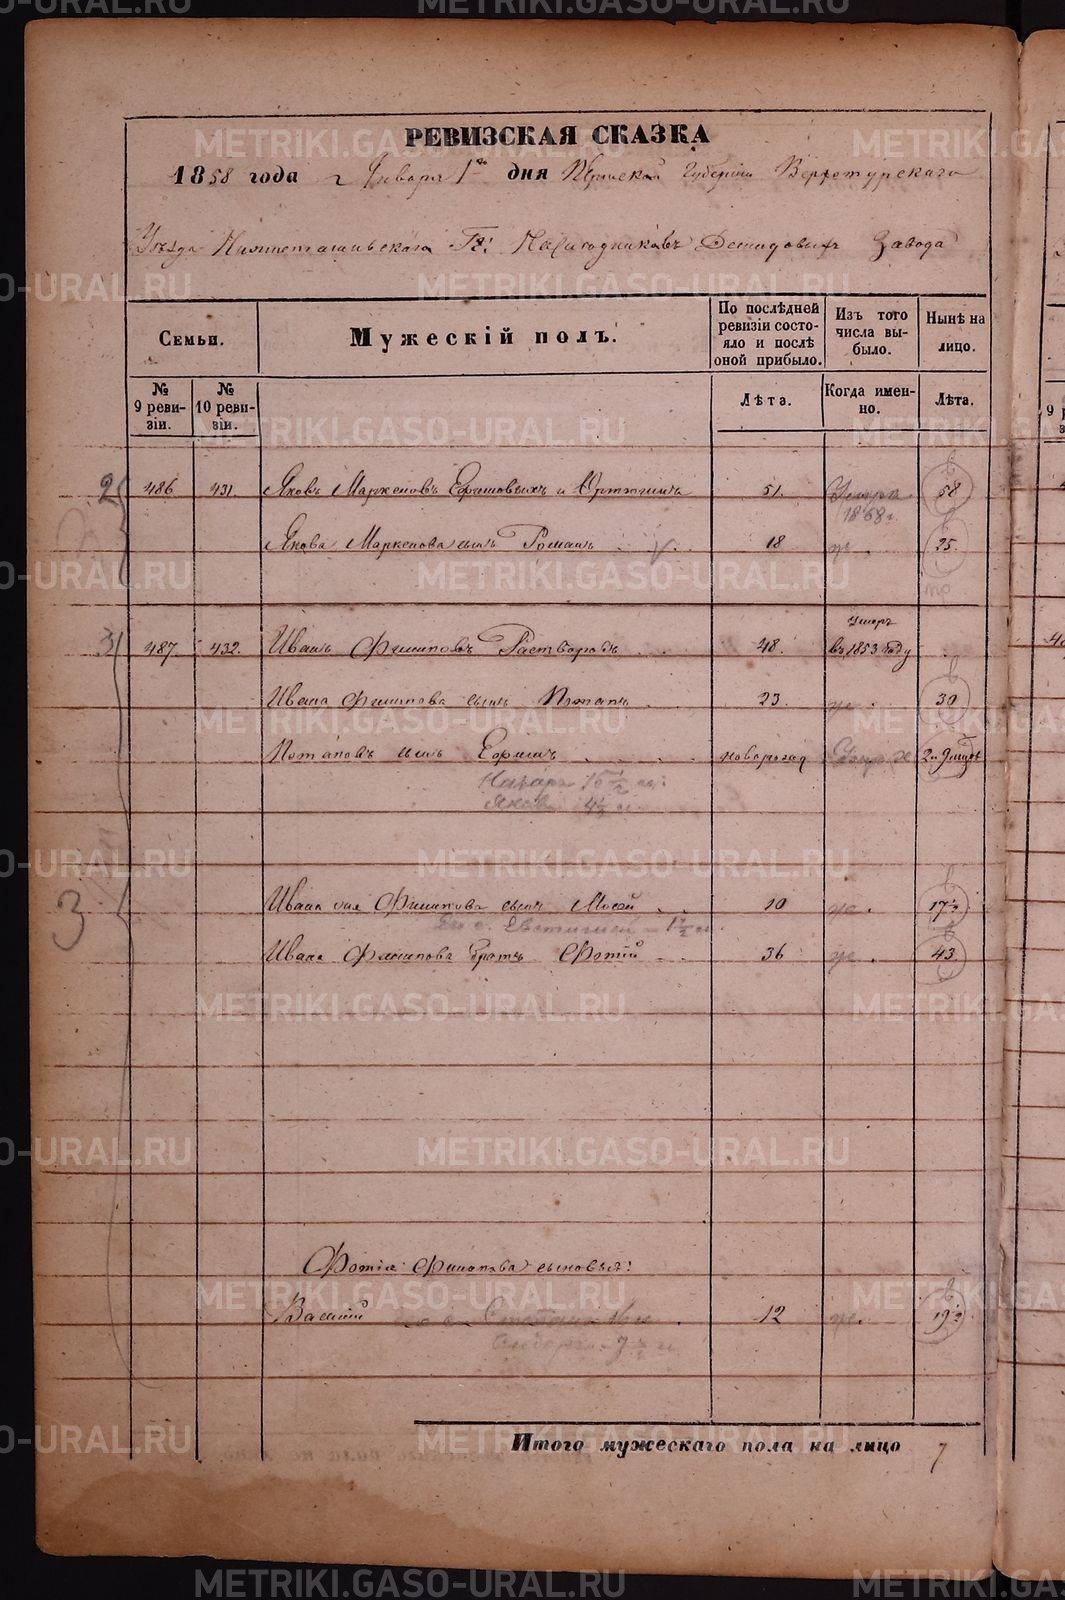 РЕВИЗСКАЯ СКАЗКА
1858 года г Января 1го дня Пермской Губерніи Верхотурскаго
Уѣзда Нижнетагильскаго Гг: Наслѣдниковъ Демидовыхъ Завода
Семьи.
Мужескій полъ.
По послѣдней ревизіи состояло и послѣ оной прибыло.
Изъ того числа выбыло.
Нынѣ на лицо.
№ 9 ревизіи.
№ 10 ревизіи.
Лѣта.
Когда именно.
Лѣта.
2 486. 431. Яковъ Маркеловъ Ефимовыхъ и 51. Умеръ 1868 г. 58
Якова Маркелова сынъ Романъ 18 25.
3 487. 432. Иванъ Филиповъ Растворовъ 48. умеръ въ 1853 году
Ивана Филипова сынъ Потапъ 23. 30
Потаповъ сынъ Ефимъ новорожд
Назаръ 10 1/2
Яковъ 4 1/2
3
Ивана Филипова сынъ Мосей 10 17 1/2
Его с. Евстигней 1 1/2 л.
Ивана Филипова братъ Фотій 36 43.
Фотія Филипова сыновья:
Василій 12 19 1/2
7 1/2
Итого мужескаго пола на лицо 7
METRIKI.GASO-URAL.RU